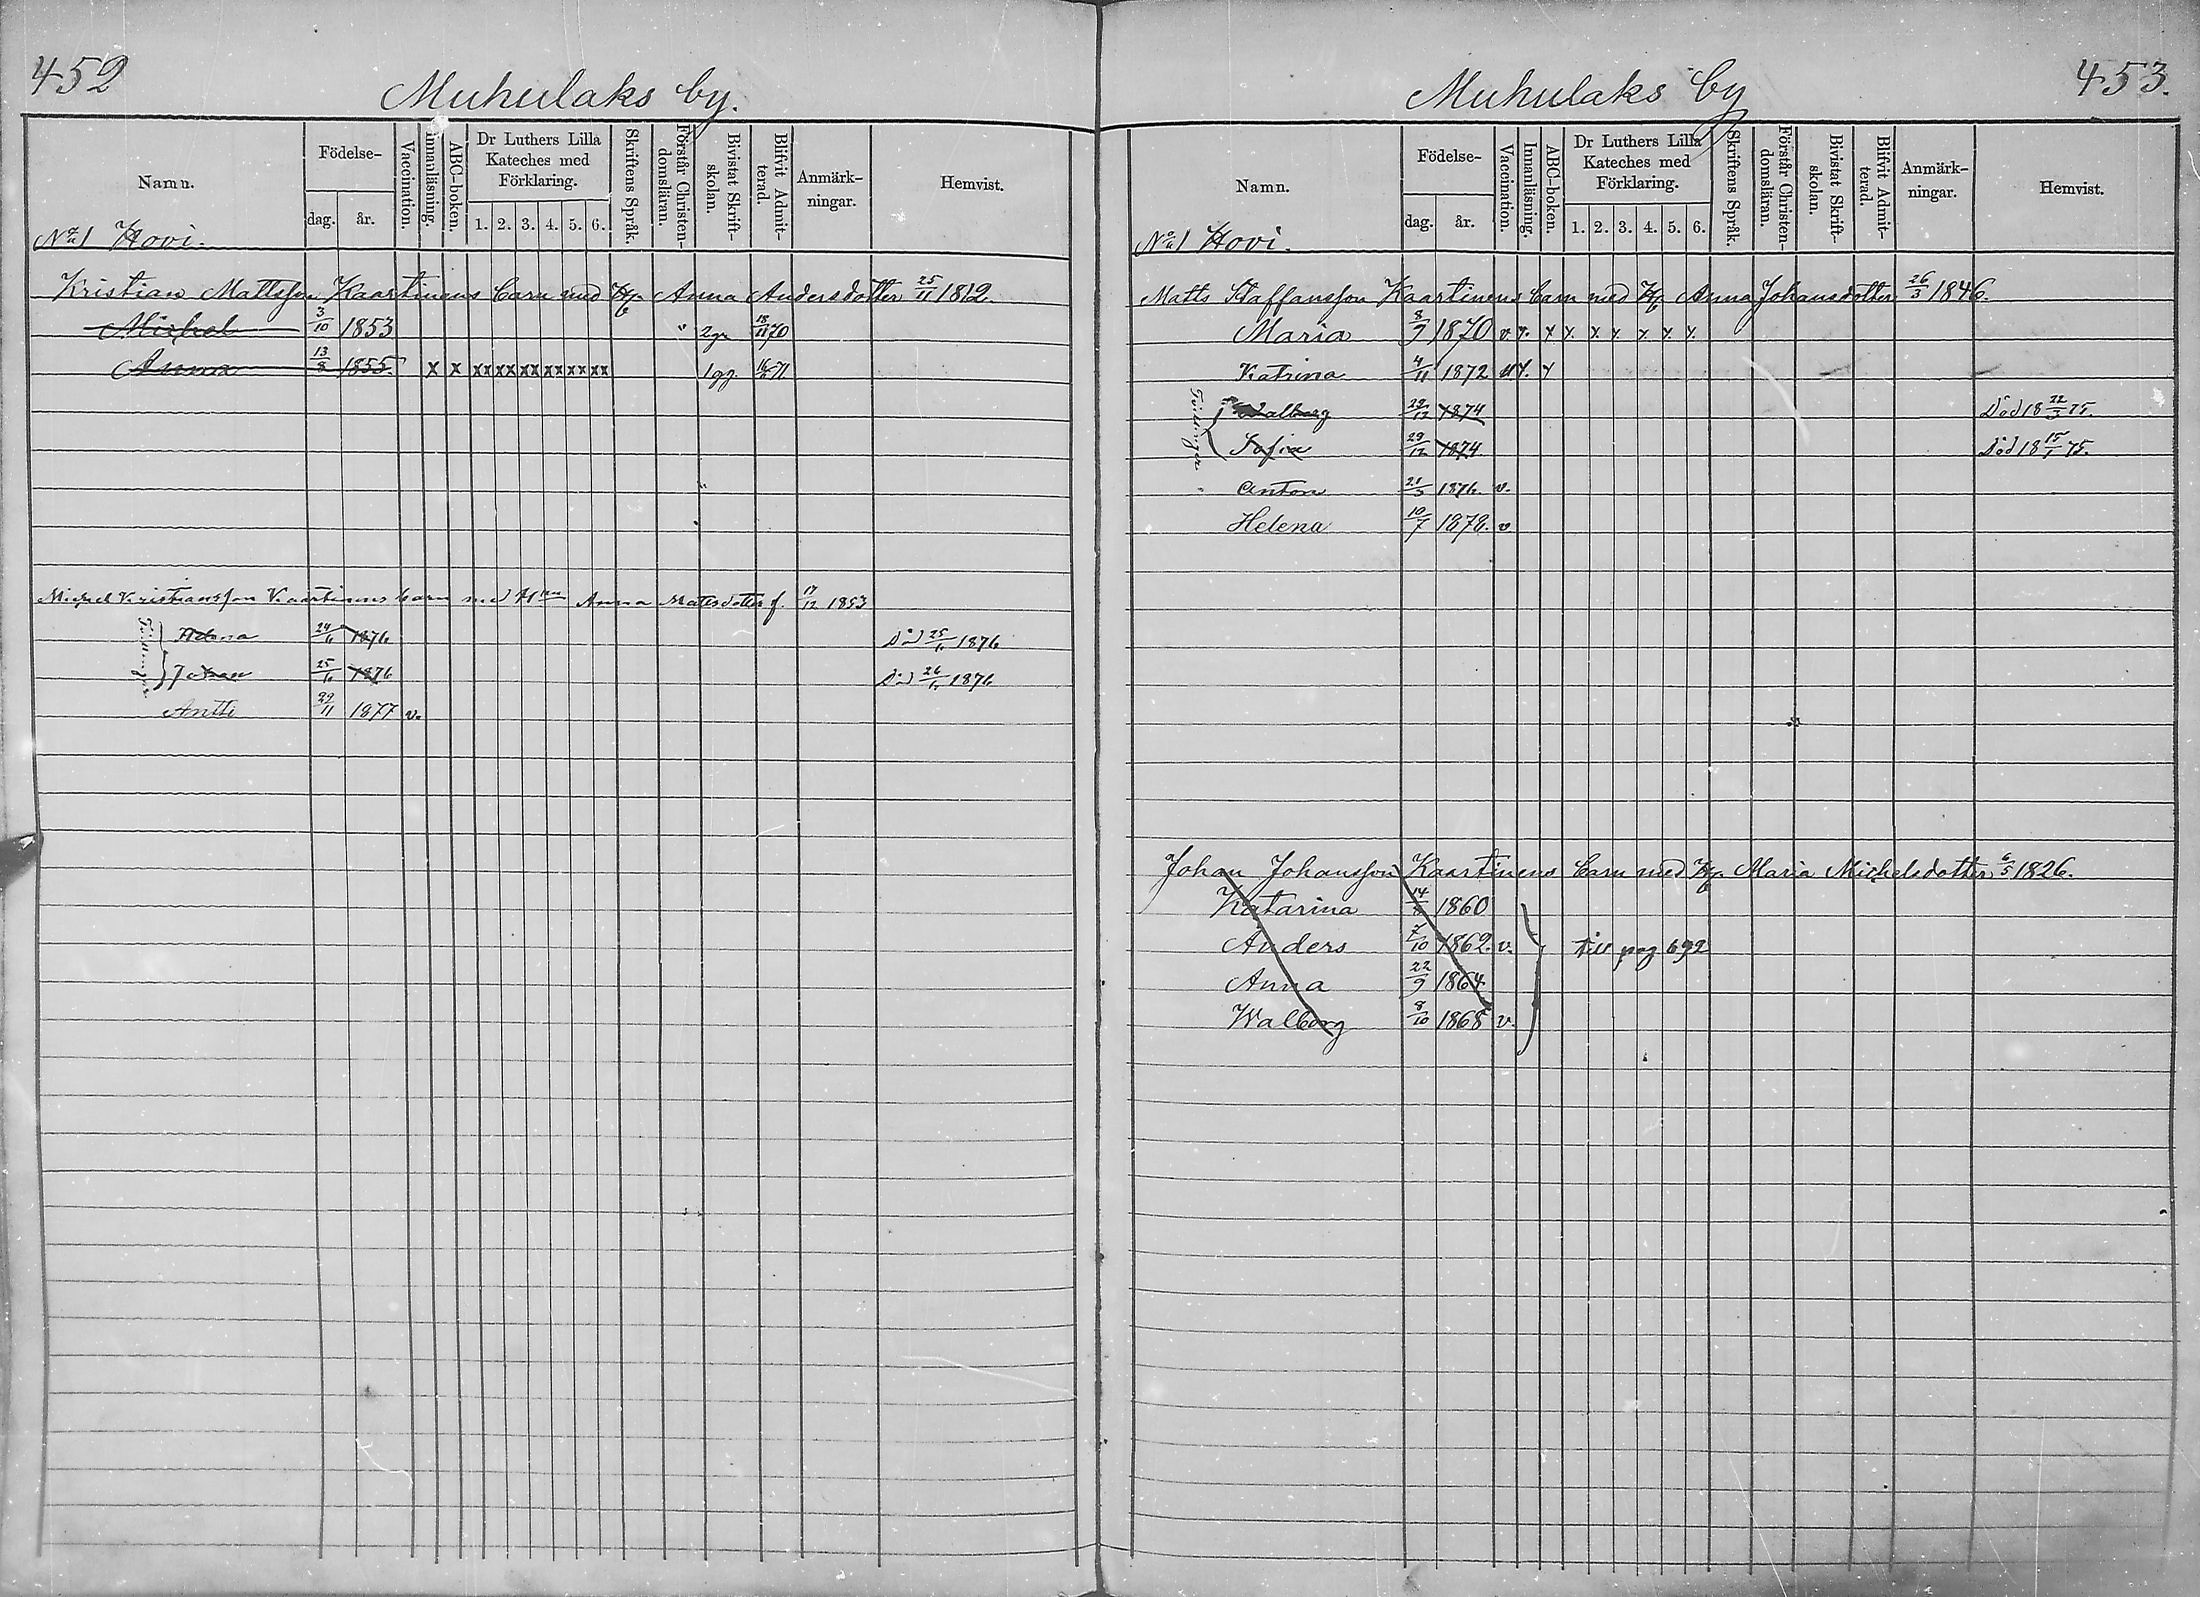 452
Muhulaks by.
Namn.
Födelse-
dag.
år.
Vaccination.
Innanläsning.
ABC-boken.
Dr Luthers Lilla
Kateches med
Förklaring.
1. 2. 3. 4. 5. 6.
Skriftens Språk.
Förstår Christen-
domsläran.
Bivistat Skrift-
skolan.
Blifvit Admit-
terad.
Anmärk-
ningar.
Hemvist.
No 1 Hovi.
Kristian Mattsson Kaartinens barn med H. Anna Andersdotter 25/11 1812.
Michel 3/10 1853 2gr 18/11 70
Anna 13/8 1855. x x xx xx xx xx xx xx 1 gg 71
Michel Kristiansson Kaartinens barn med Anna Matsdotter f. 17/12 1853
Tvillingar
Helena 24/6 1876 Död 25/6 1876
Johan 25/6 1876 Död 26/6 1876
Antti 22/11 1877 v.
453.
Muhulaks by
Namn.
Födelse-
dag.
år.
Vaccination.
Innanläsning.
ABC-boken.
Dr Luthers Lilla
Kateches med
Förklaring.
1. 2. 3. 4. 5. 6.
Skriftens Språk.
Förstår Christen-
domsläran.
Bivistat Skrift-
skolan.
Blifvit Admit-
terad.
Anmärk-
ningar.
Hemvist.
No 1 Hovi.
Matts Staffansson Kaartinens barn med H. Anna Johansdotter 26/3 1846.
Maria 8/9 1870 v. x. x x. x. x. x. x. x.
Katrina 4/11 1872 x
Tvillingar
Walborg 29/12 1874 Död 18 22/3 75.
Sofia 29/12 1874 Död 18 15/1 75.
Anton 21/3 1876. v.
Helena 10/7 1878. v
Johan Johansson Kaartinens barn med H. Maria Michelsdotter 6/5 1826.
Katarina 14/8 1860
Anders 7/10 1862. v. till pag 692
Anna 22/9 1864
Walborg 8/10 1868 v.